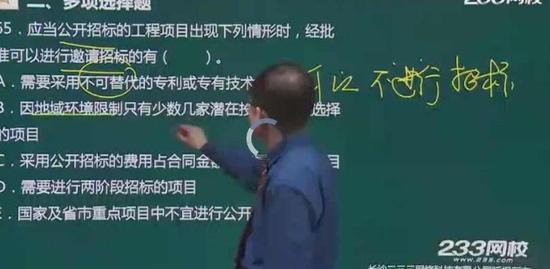 二、多项选择题
233网校
55．应当公开招标的工程项目出现下列情形时，经批
准可以进行邀请招标的有（ ）。
A．需要采用不可替代的专利或专有技术
可以不进行招标
B．因地域环境限制只有少数几家潜在投 选择
的项目
C．采用公开招标的费用占合同金额 目
D．需要进行两阶段招标的项目
E．国家及省市重点项目中不宜进行公开
233网校